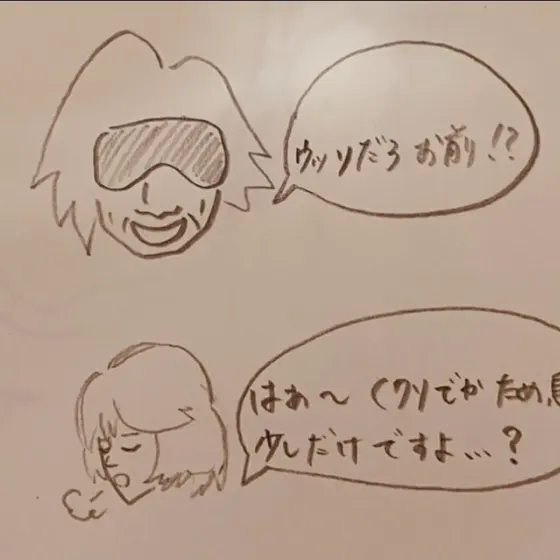 ウッソだろお前!?
はあ〜(クソでかため息
少しだけですよ...?